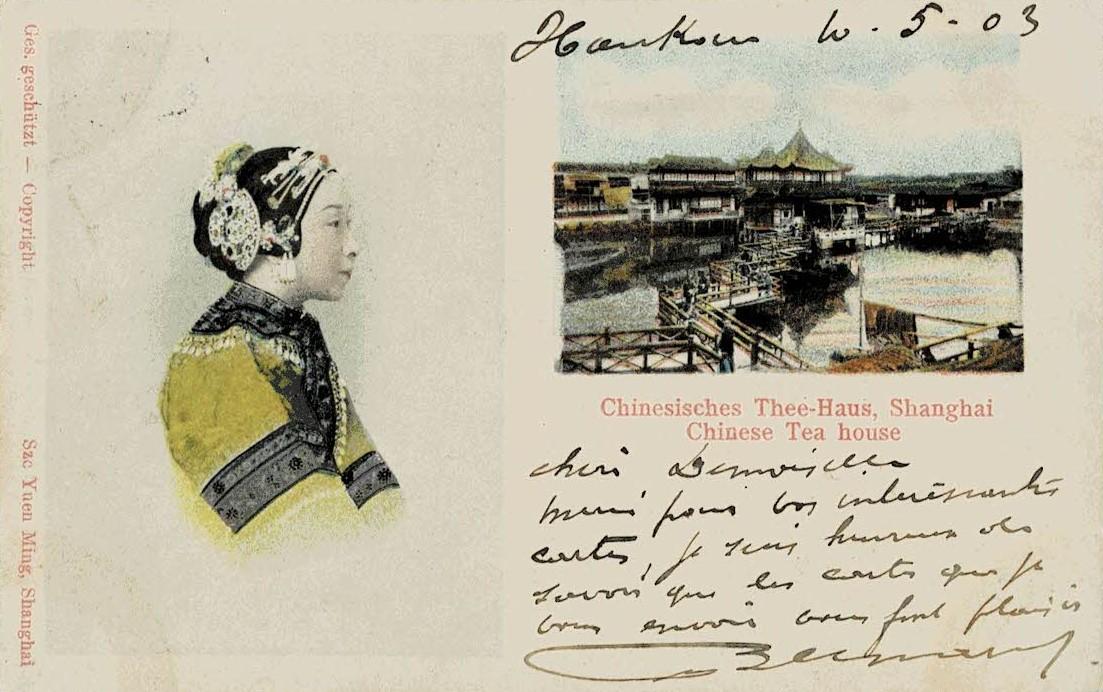 Ges. geschützt — Copyright
Szc Yuen Ming, Shanghai
Hankow 10 · 5 - 03
Chinesisches Thee-Haus, Shanghai
Chinese Tea house
chère Demoiselle
merci pour vos intéressantes
cartes, je suis heureux de
savoir que les cartes que je
vous envoie vous font plaisir